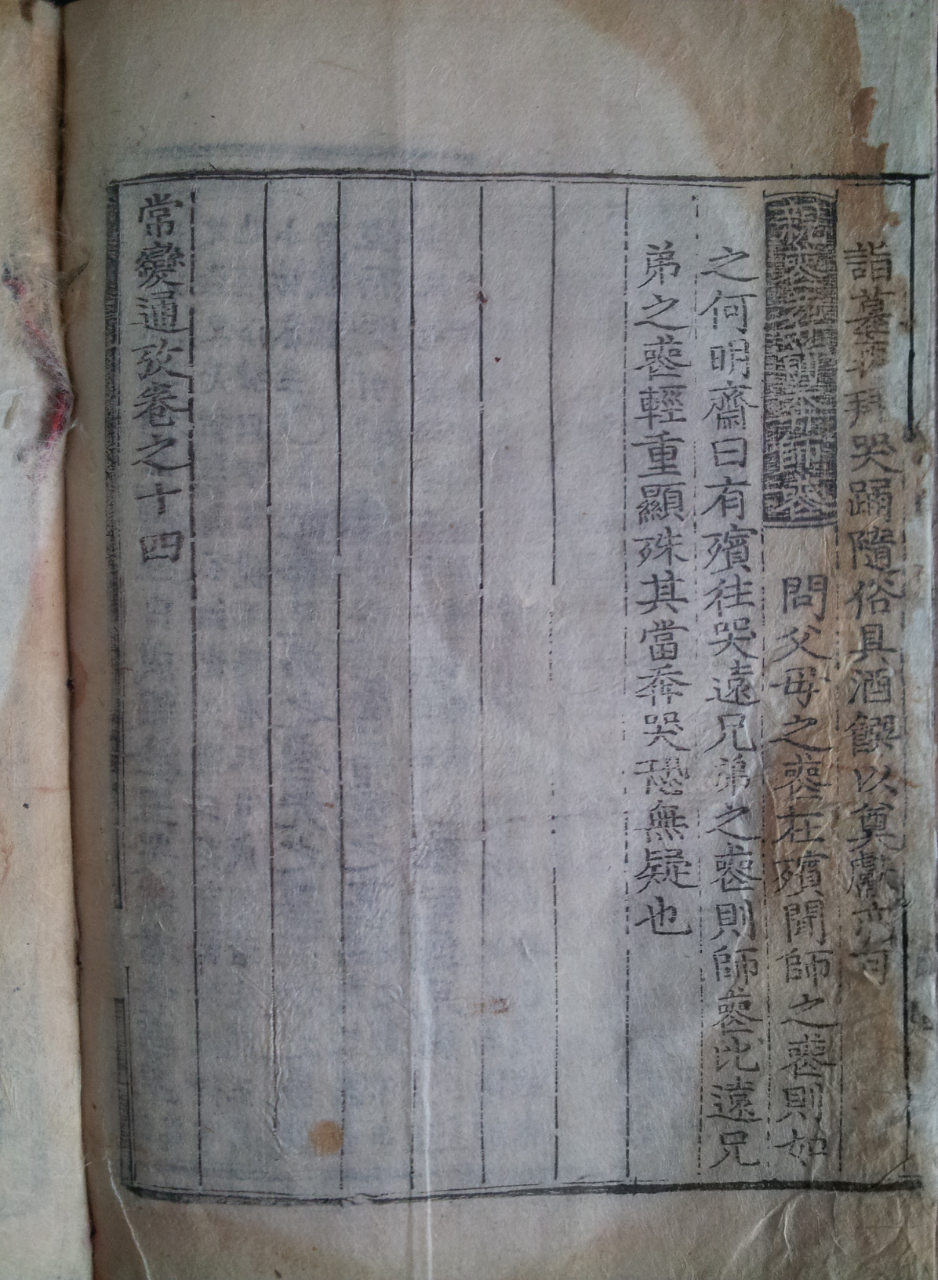 詣墓再拜哭踊隨俗具酒饌以奠獻亦可
親喪在殯奔師喪 問父母之喪在殯聞師之喪則如
之何明齋曰有殯往哭遠兄弟之喪則師喪比遠兄
弟之喪輕重顯殊其當奔哭恐無疑也
常變通攷卷之十四